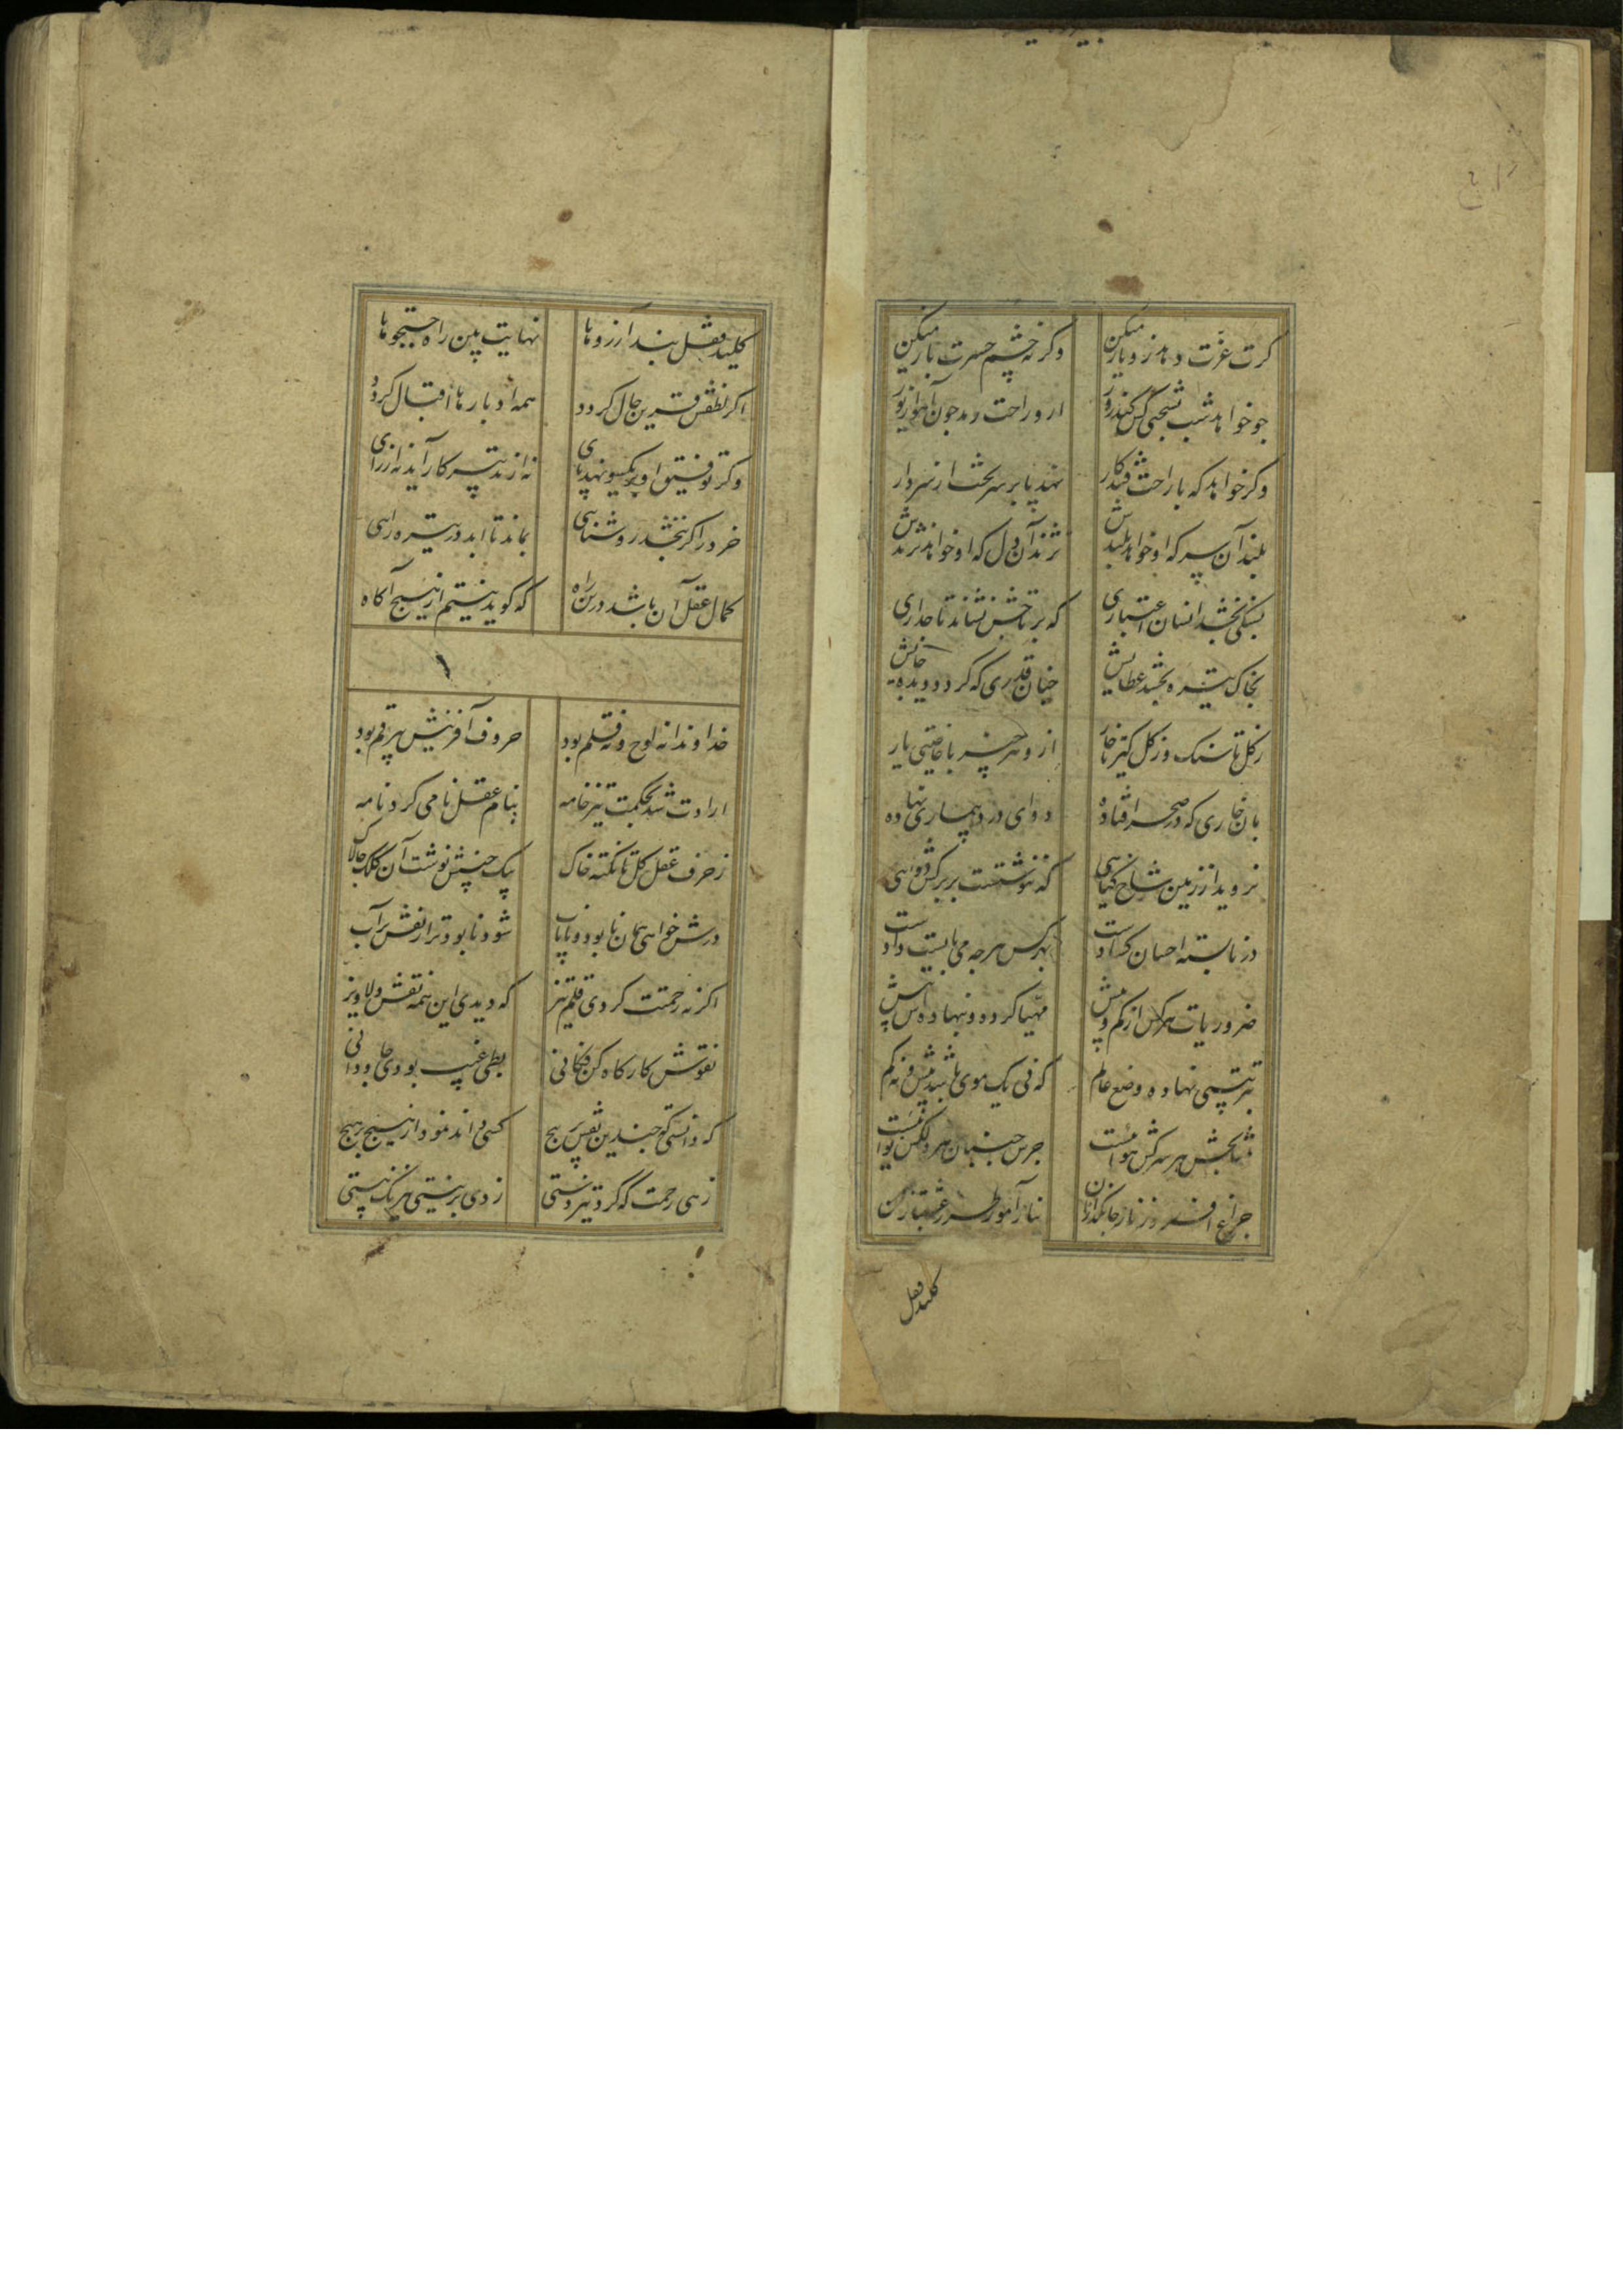 کرت عزت دهد رو ناز میکن وکرنه چشم حسرت باز میکن
جو خواهد شب بسختی کس کند روز ازو راحت رمد جون آهو از یوز
وکر خواهد که با راحت فتد کار نهد پا بر سر تخت از سر دار
بلند آن سر که او خواهد بلندش نژند آن دل که او خواهد نژندش
بسنکی بخشد انسان اعتباری که بر تاجش نشاند تاجداری
بخاک تیره بخشد عطایش جنان قدری که کردد دیده جایش
زکل تا سنک وز کل کیر تا خار ازو هر چیز با خاصیتی یار
بان خاری که در صحرا فتاده دوای درد بیماری نهاده
نروید از زمین شاخ کیاهی که ننوشتست بر برکش دواهی
در نابسته احسان کشادست بهر کس هرجه می بایست دادست
ضروریات هر کس از کم و بیش مهیا کرده و بنهاده اش پیش
بترتیبی نهاده وضع عالم که نی یک موی باشد بیش و نه کم
بخش هر سرکش هوائیست جرس جنبان هر دلکش نوائیست
جراغ افروز ناز جانکدازان نیاز آموز طرز عشقبازان
کلید قفل
کلید قفل بند آرزوها نهایت بین راه جستجوها
اکر لطفش قرین حال کردد همه ادبارها اقبال کردد
وکر توفیق او یکسو نهد پای نه از تدبیر کار آید نه از رای
خرد را کر نبخشد روشنایی بماند تا ابد در تیره رایی
کمال عقل آن باشد درین راه که کوید نیستم از هیچ آکاه
خداوندا نه لوح و نه قلم بود حروف آفرینش بی رقم بود
ارادت شد بحکمت تیز خامه بنام عقل نامی کرد نامه
ز حرف عقل کل تا نکته خاک بیک جنبش نوشت آن کلک جالاک
ورش خواهی همان نابود و نایاب شود نابودتر از نقش بر آب
اکر نه رحمتت کردی قلم تیز که دیدی این همه نقش دلاویز
نقوش کارکاه کن فکانی بطی غیب بودی جاودانی
که دانستی که جندین نقش پر پیج کسی داند نمود از هیچ بر هیچ
زهی رحمت که کردت تیزدستی زدی بر نیستی نیرنک هستی